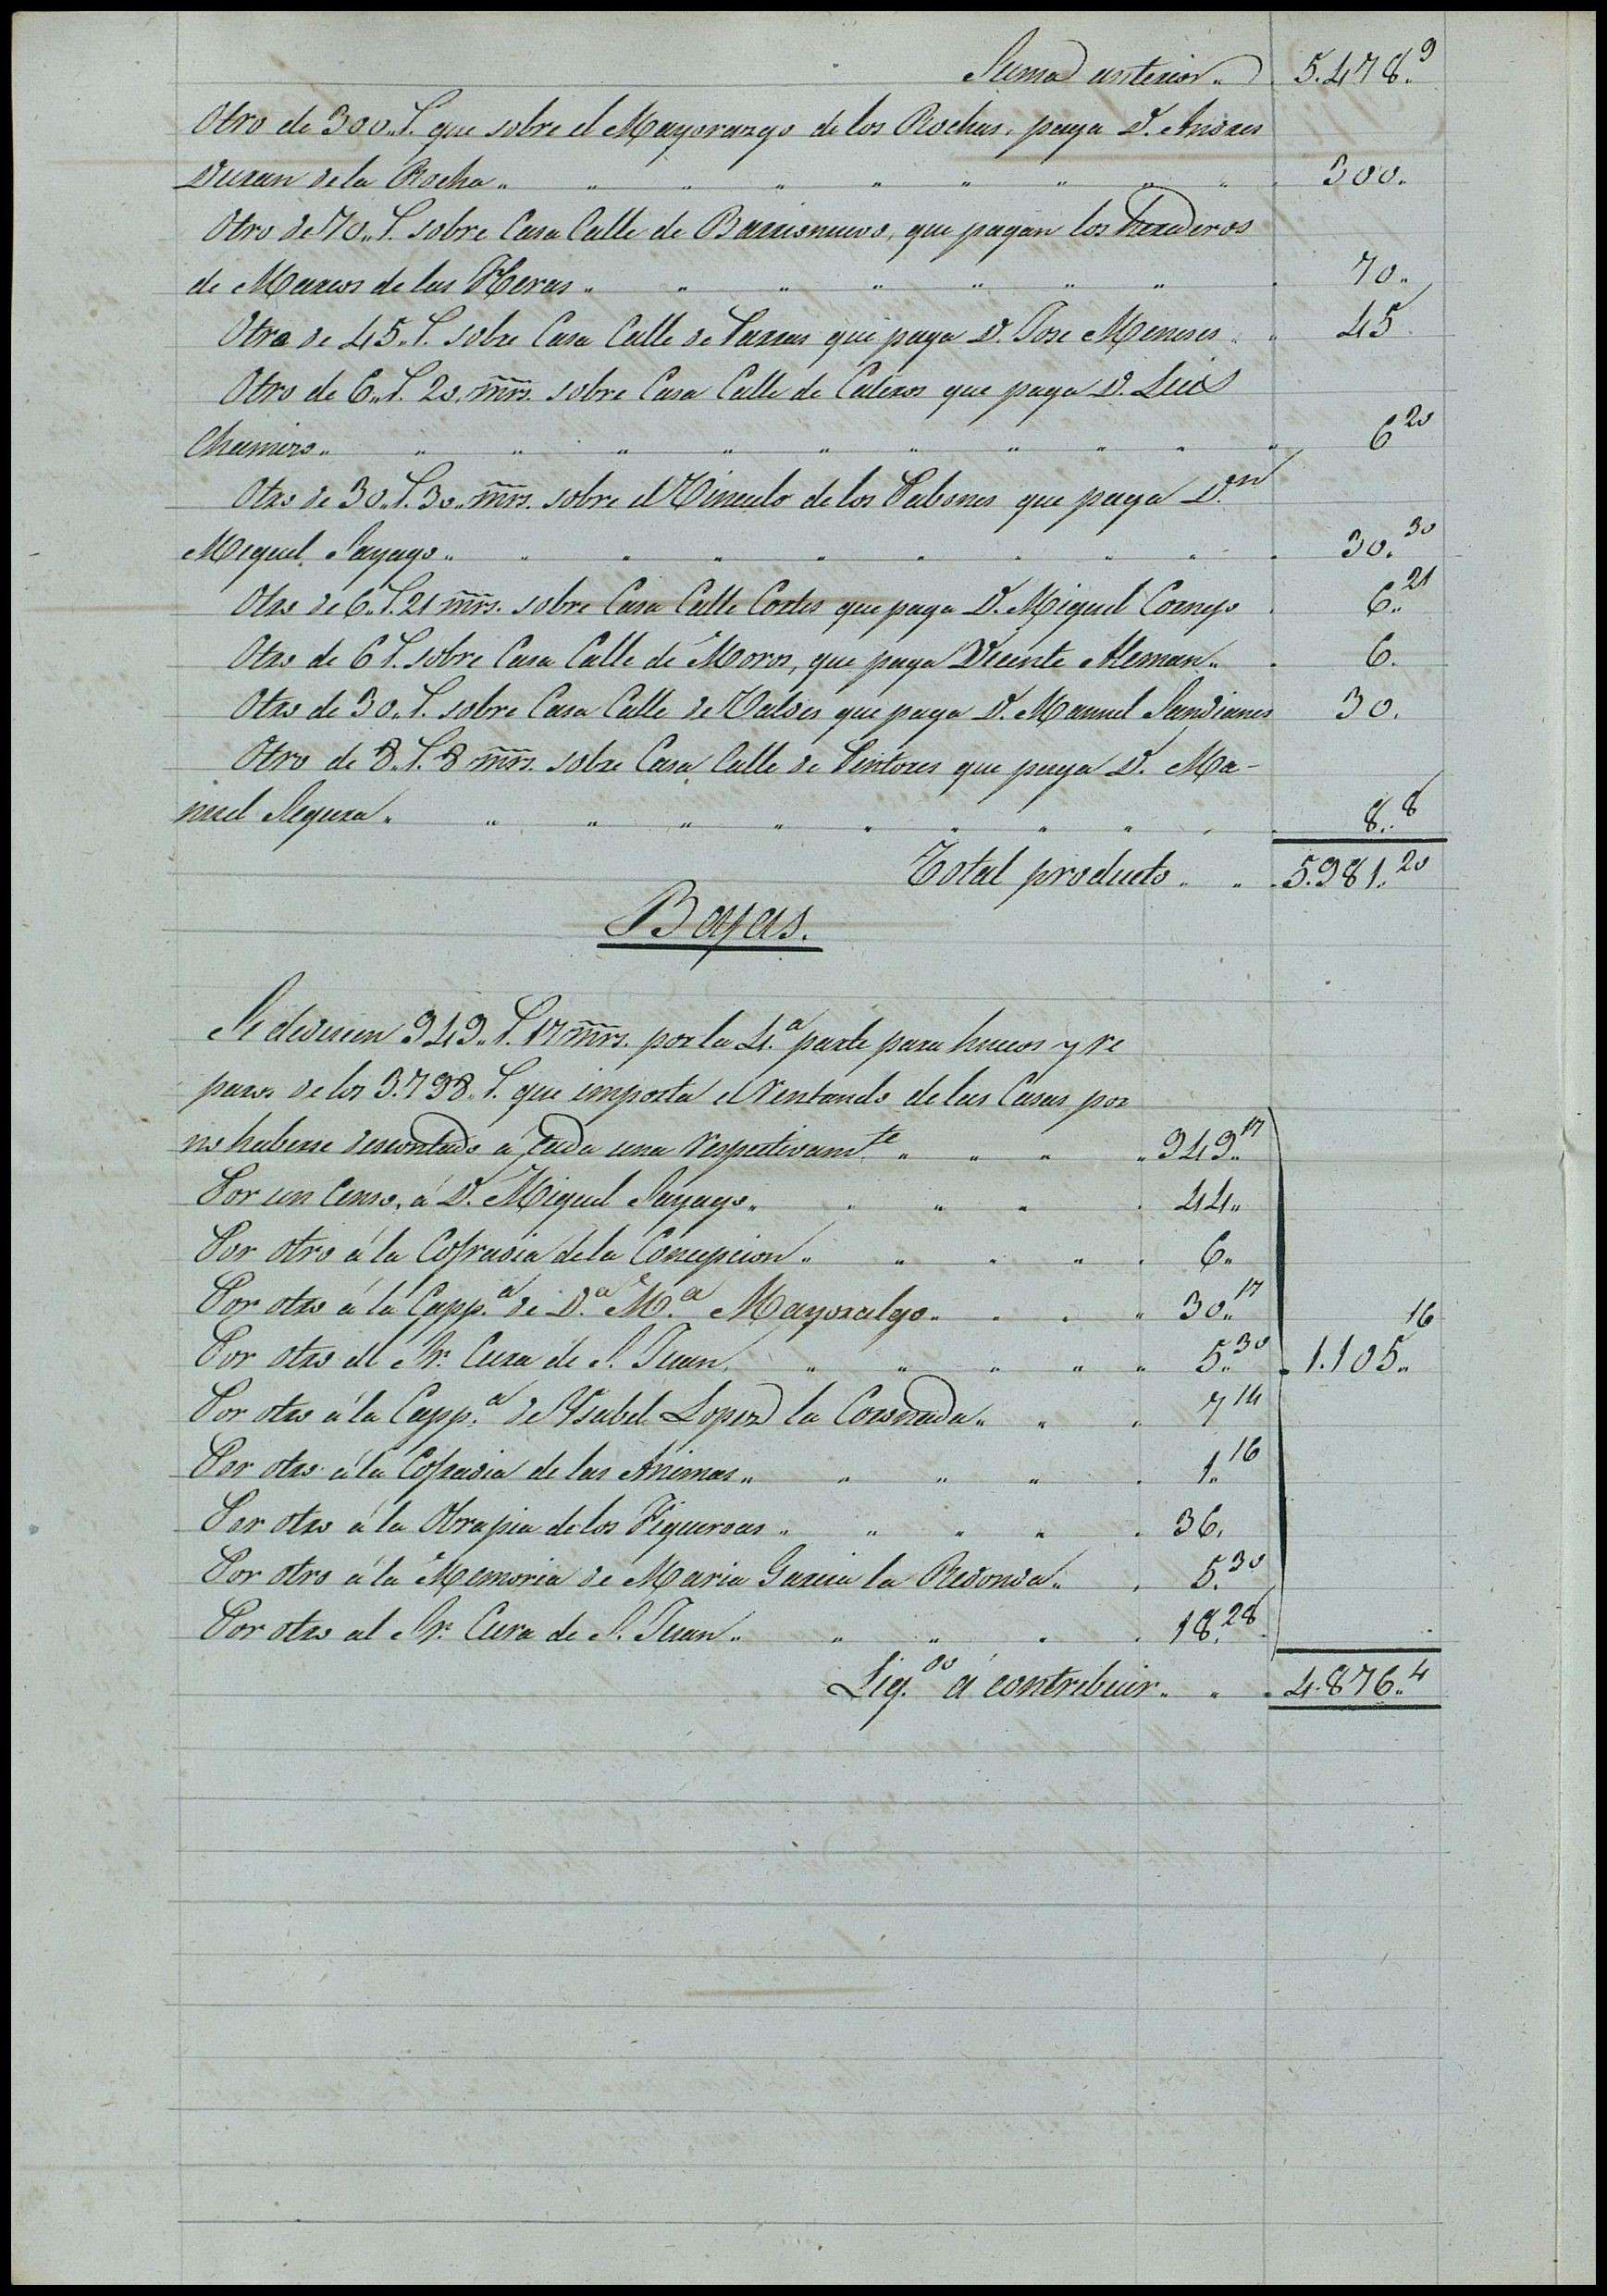 Suma anterior.. 5.478..9
Otro de 300.. S. que sobre el Mayorazgo de los Rochas, paga D. Andres
Duran de la Rocha.. 300..
Otro de 70.. S. sobre Casa Calle de Barrionuevo, que pagan los herederos
de Marcos de las Heras.. 70..
Otro de 45.. S. sobre Casa Calle de Parras que paga D. Jose Meneses.. 45
Otro de 6.. S. 20. mrs. sobre Casa Calle de Caleros que paga D. Luis
Chamizo.. 6 20
Otro de 30.. S. 30.. mrs. sobre el Vinculo de los Pabones que paga D.n
Miguel Sayago.. 30. 30
Otro de 6.. S. 21 mrs. sobre Casa Calle Cortes que paga D. Miguel Cornejo 6.. 21
Otro de 6 S. sobre Casa Calle de Moros, que paga Vicente Aleman.. 6.
Otro de 30.. S. sobre Casa Calle de Caldes que paga D. Manuel Sandianes 30.
Otro de 8.. S. 8 mrs. sobre Casa Calle de Pintores que paga D. Ma-
nuel Segura.. 8.. 8
Total producto.. 5.981.. 20
Bajas.
Se deducen 949.. S. 17 mrs. por la 4.a parte para huecos y re
paros de los 3.798.. S. que importa el Rentando de las Casas por
no haberse descontado á cada una respectivam.te.. 949.. 17
Por un Censo, á D. Miguel Sayago.. 44..
Por otro á la Cofradia de la Concepcion.. 6..
Por otro á la Capp.a de D.a M.a Mayoralgo.. 30.. 17
Por otro al Sr. Cura de S. Juan. 5.. 30 1.105.. 16
Por otro á la Capp.a de Ysabel Lopez la Coronada.. 7 14
Por otro á la Cofradia de las Animas.. 1.. 16
Por otro á la Obrapia de los Figueroas.. 36.
Por otro á la Memoria de Maria Garcia la Redonda.. 5. 30
Por otro al Sr. Cura de S. Juan.. 18. 28
Liq.do á contribuir.. 4.876.. 4